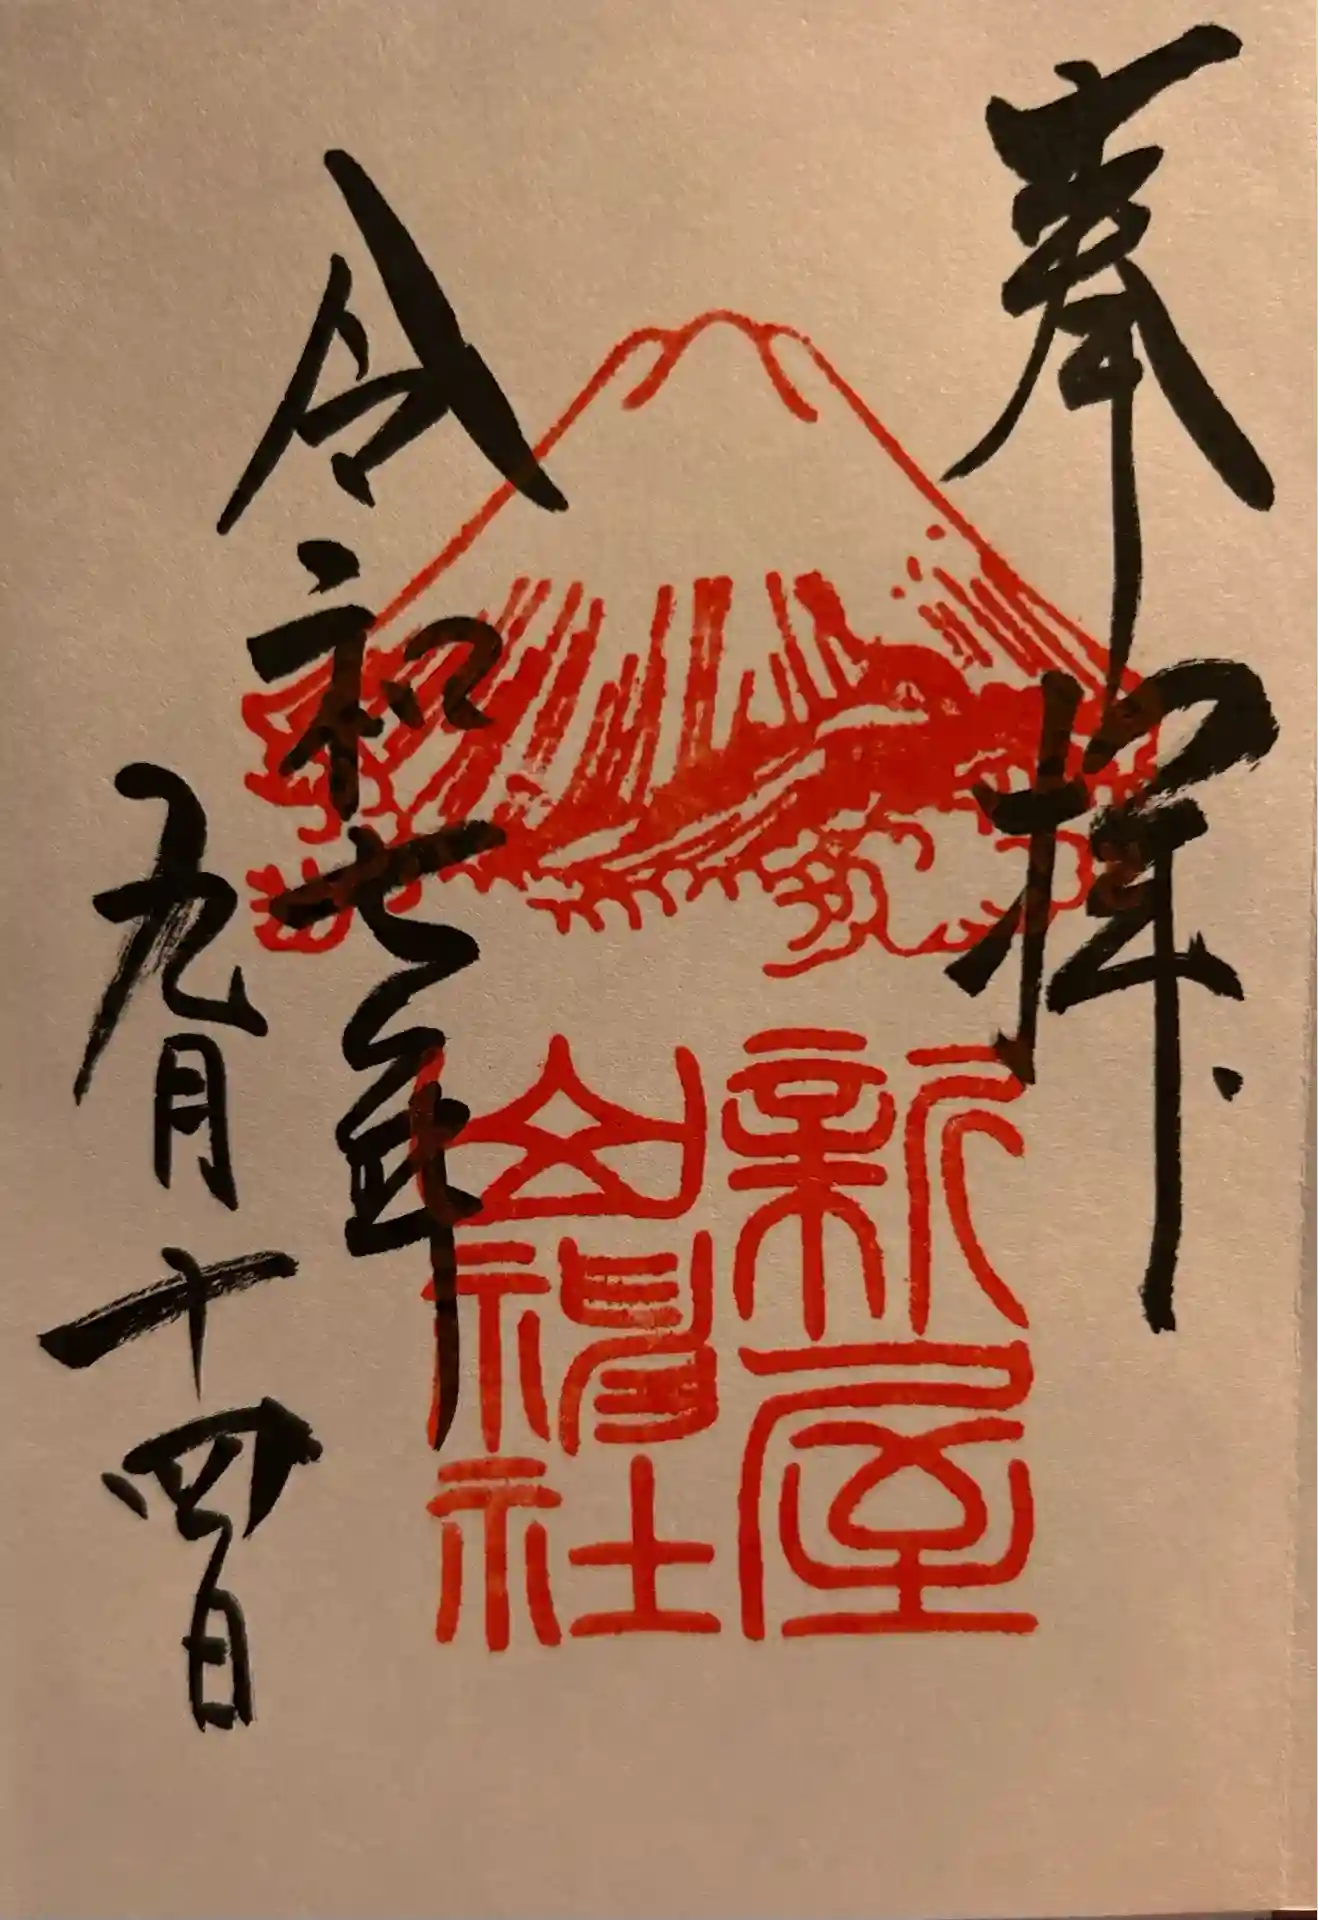 奉拝
新屋
山神社
令和七年
九月十四日